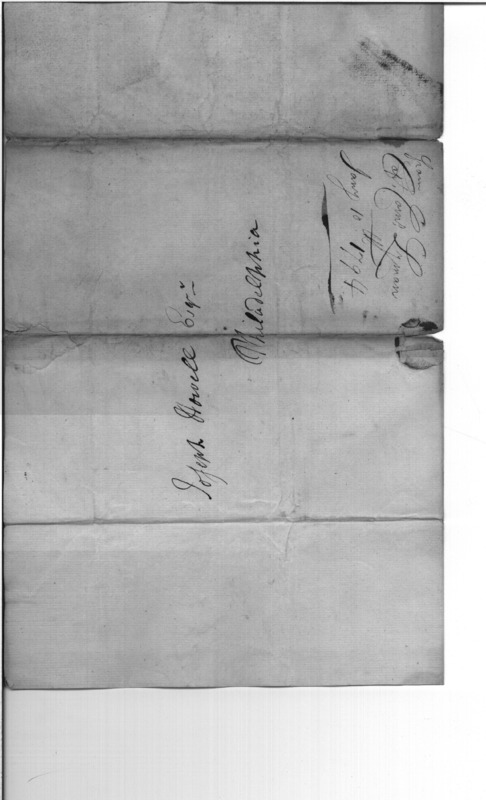 Joseph Howell Esqr
Philadelphia
from
Capt Corns Lyman
10th 1794